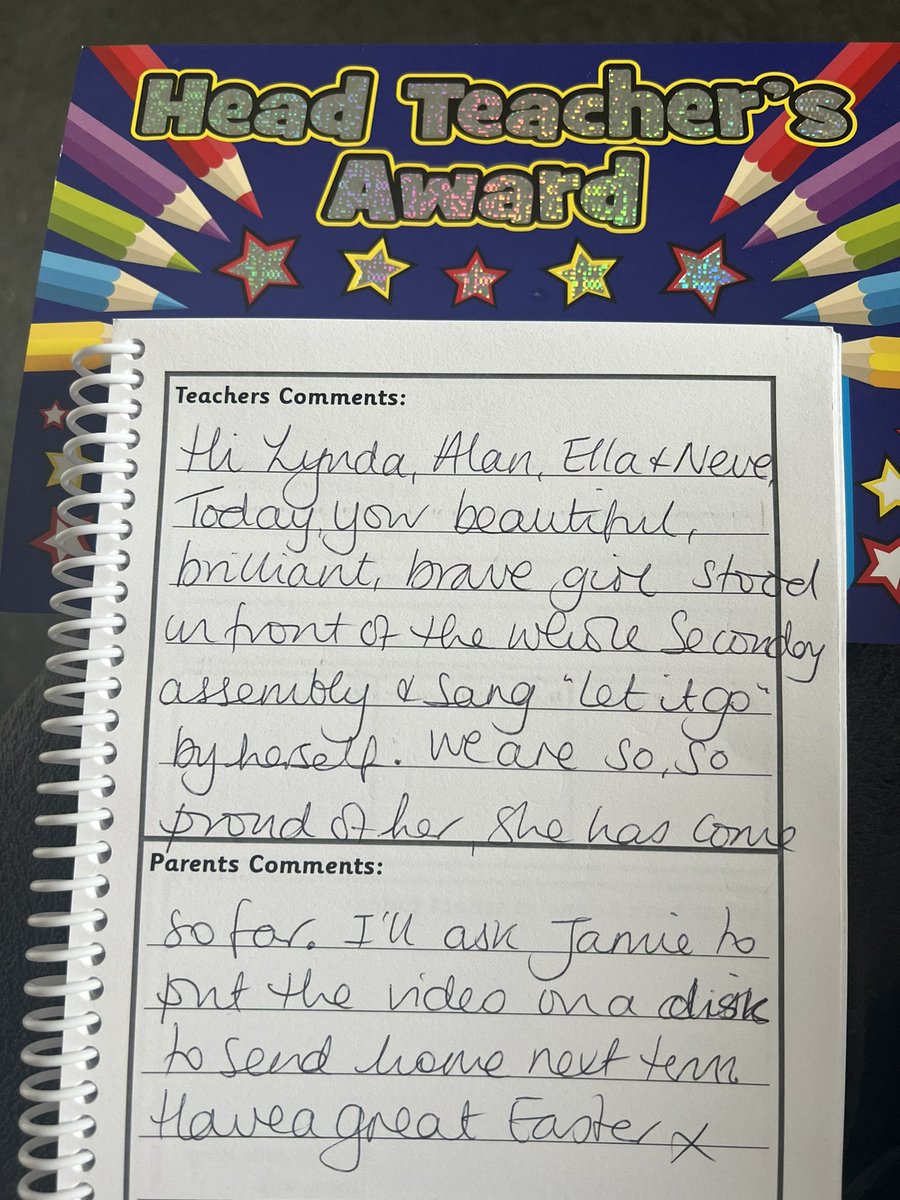 Head Teacher's
Award
Teachers Comments:
Hi Lynda, Alan, Ella & Neve,
Today, your beautiful,
brilliant, brave girl stood
in front of the whole Secondary
assembly & sang "let it go"
by herself. We are so, so
proud of her, she has come
Parents Comments:
so far. I'll ask Jamie to
put the video on a disk
to send home next term.
Have a great Easter x